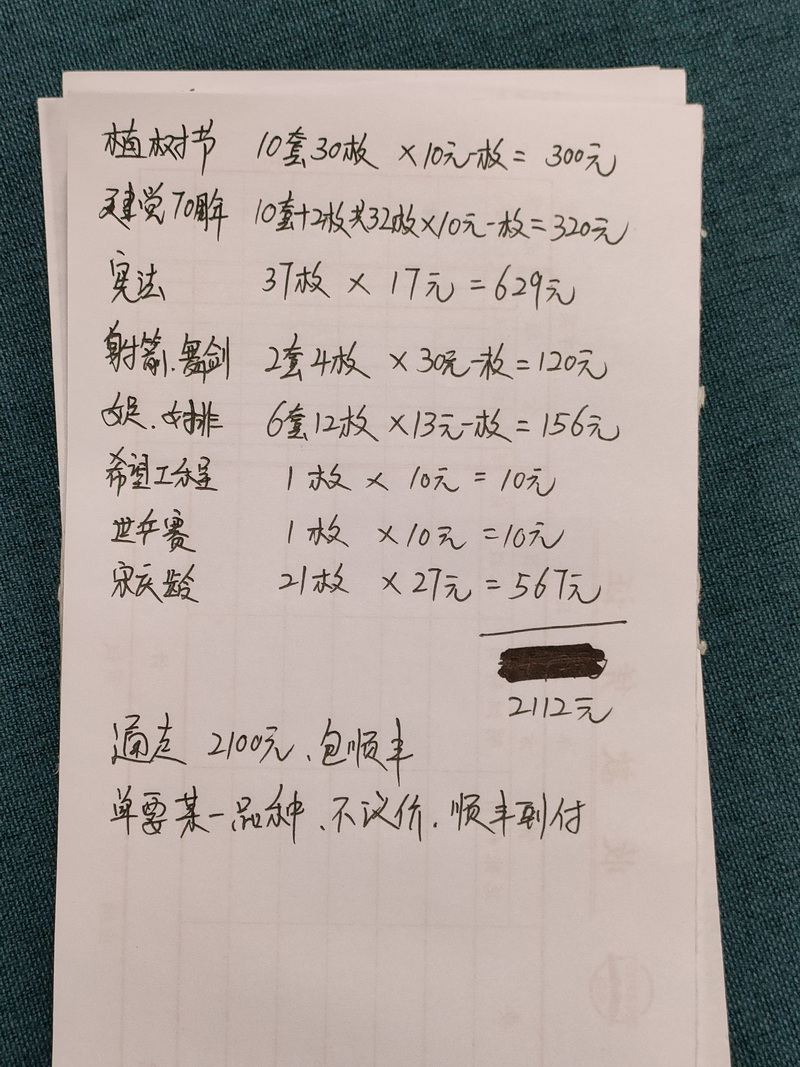 植树节 10套30枚 ×10元一枚 = 300元
建党70周年 10套+2枚共32枚×10元一枚=320元
宪法 37枚 × 17元 = 629元
射箭.舞剑 2套4枚 ×30元一枚=120元
女足.女排 6套12枚 ×13元一枚=156元
希望工程 1枚 × 10元 = 10元
世乒赛 1枚 ×10元 =10元
宋庆龄 21枚 ×27元 =567元
2112元
通走 2100元、包顺丰
单要某一品种、不议价.顺丰到付